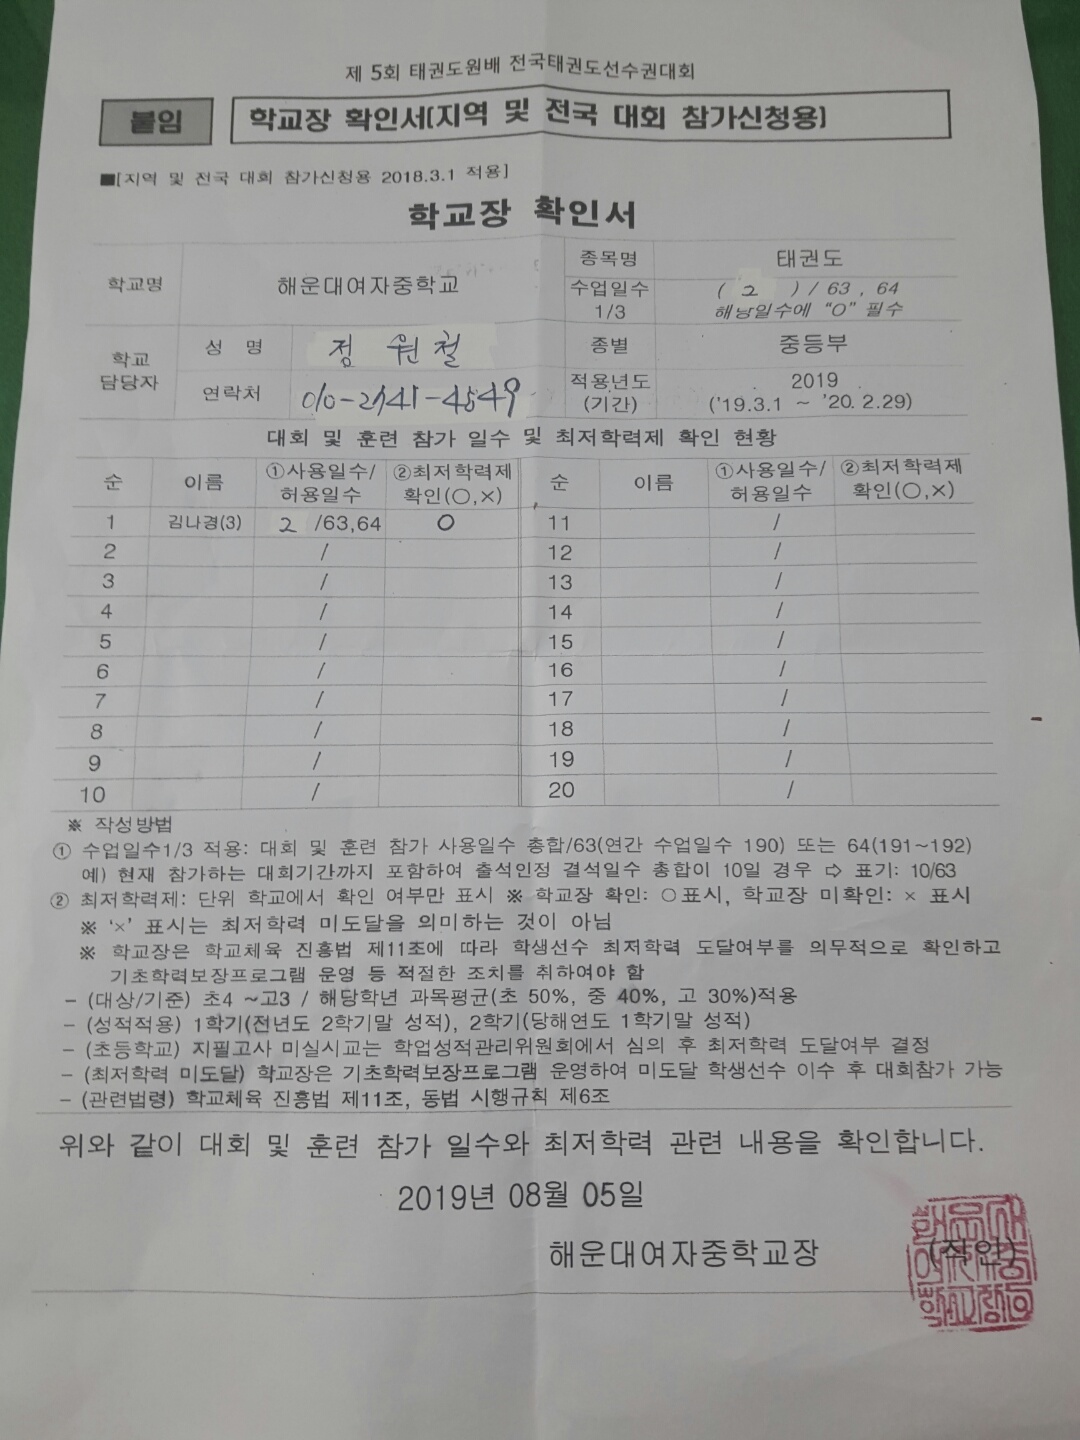 제 5회 태권도원배 전국태권도선수권대회
붙임 학교장 확인서[지역 및 전국 대회 참가신청용]
■[지역 및 전국 대회 참가신청용 2018.3.1 적용]
학교장 확인서
학교명 해운대여자중학교 종목명 태권도
수업일수 1/3 ( 2 ) / 63 , 64
해당일수에 "O" 필수
학교 담당자 성 명 정 원철 종별 중등부
연락처 적용년도 (기간) 2019 ('19.3.1 ~ '20. 2.29)
대회 및 훈련 참가 일수 및 최저학력제 확인 현황
순 이름 ①사용일수/허용일수 ②최저학력제 확인(○,×) 순 이름 ①사용일수/허용일수 ②최저학력제 확인(○,×)
1 김나경(3) 2 /63,64 O 11 /
2 / 12 /
3 / 13 /
4 / 14 /
5 / 15 /
6 / 16 /
7 / 17 /
8 / 18 /
9 / 19 /
10 / 20 /
※ 작성방법
① 수업일수1/3 적용: 대회 및 훈련 참가 사용일수 총합/63(연간 수업일수 190) 또는 64(191~192)
예) 현재 참가하는 대회기간까지 포함하여 출석인정 결석일수 총합이 10일 경우 ⇨ 표기: 10/63
② 최저학력제: 단위 학교에서 확인 여부만 표시 ※ 학교장 확인: ○표시, 학교장 미확인: × 표시
※ '×' 표시는 최저학력 미도달을 의미하는 것이 아님
※ 학교장은 학교체육 진흥법 제11조에 따라 학생선수 최저학력 도달여부를 의무적으로 확인하고
기초학력보장프로그램 운영 등 적절한 조치를 취하여야 함
- (대상/기준) 초4 ~고3 / 해당학년 과목평균(초 50%, 중 40%, 고 30%)적용
- (성적적용) 1학기(전년도 2학기말 성적), 2학기(당해연도 1학기말 성적)
- (초등학교) 지필고사 미실시교는 학업성적관리위원회에서 심의 후 최저학력 도달여부 결정
- (최저학력 미도달) 학교장은 기초학력보장프로그램 운영하여 미도달 학생선수 이수 후 대회참가 가능
- (관련법령) 학교체육 진흥법 제11조, 동법 시행규칙 제6조
위와 같이 대회 및 훈련 참가 일수와 최저학력 관련 내용을 확인합니다.
2019년 08월 05일
해운대여자중학교장 (직인)